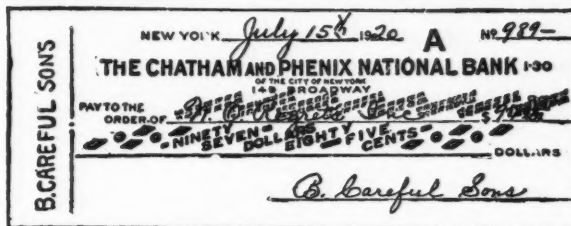 B. CAREFUL SON'S
NEW YORK July 15th 1920 A No 989-
THE CHATHAM AND PHENIX NATIONAL BANK 1-30
OF THE CITY OF NEW YORK
149 BROADWAY
PAY TO THE
ORDER OF N. O. Regrets Inc
NINETY SEVEN DOLLARS EIGHTY FIVE CENTS
DOLLARS
B. Careful Sons